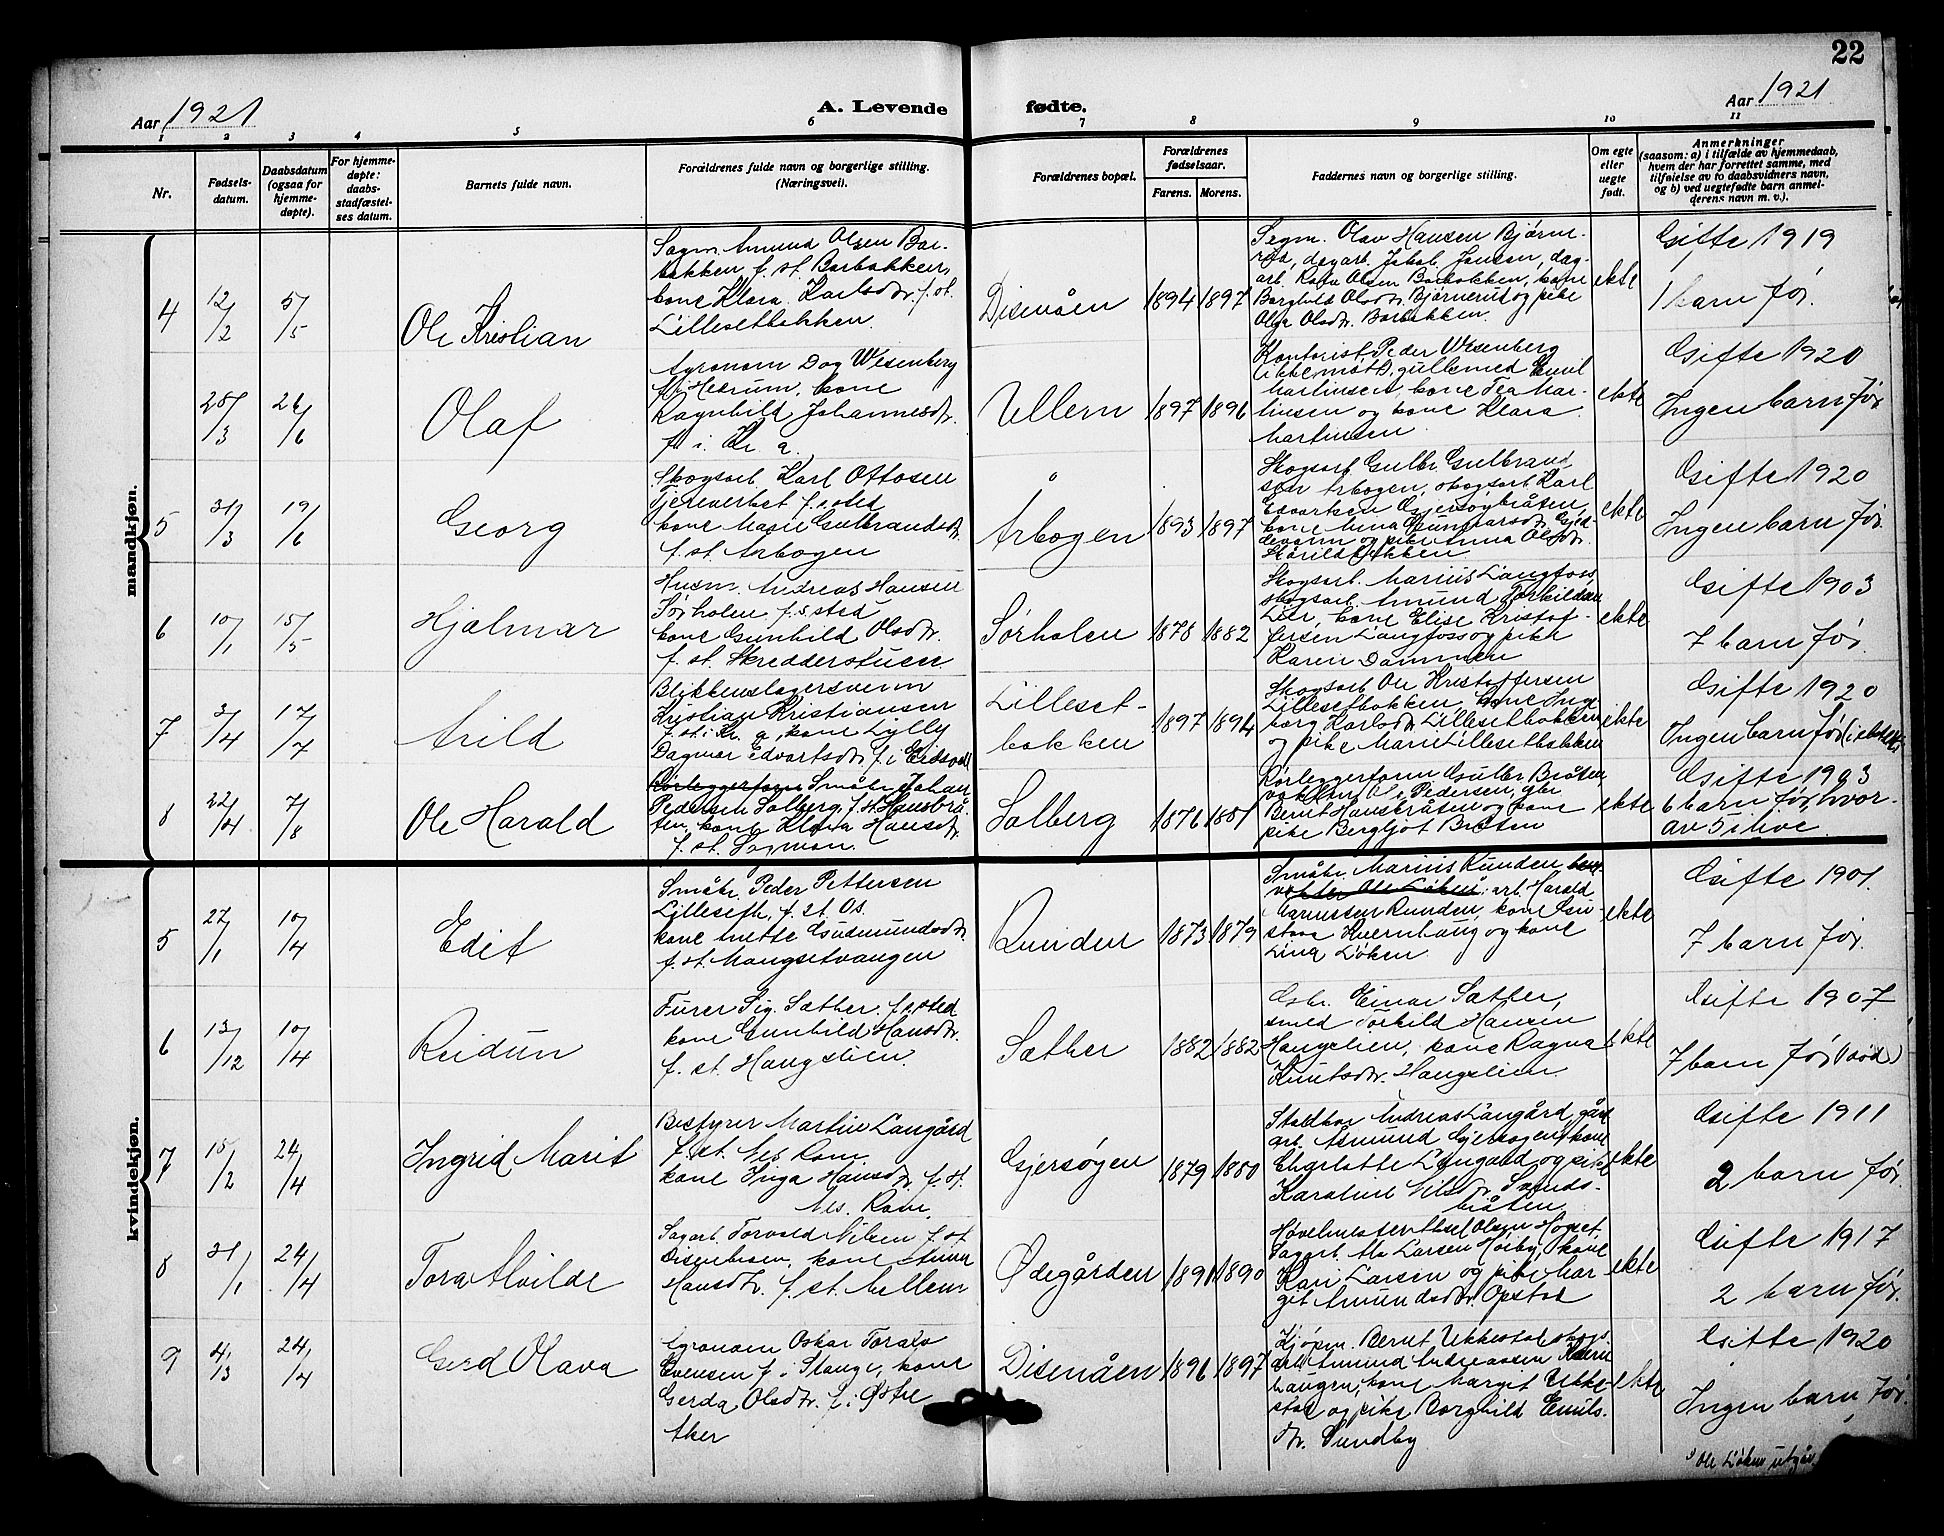 22
Aar 1921
A. Levende fødte.
Aar 1921
1 2 3 4 5 6 7 8 9 10 11
Nr.
Fødsels-
datum.
Daabsdatum
(ogsaa for
hjemme-
døpte).
For hjemme-
døpte:
daabs-
stadfæstel-
ses datum.
Barnets fulde navn.
Forældrenes fulde navn og borgerlige stilling.
(Næringsvei).
Forældrenes bopæl.
Forældrenes
fødselsaar.
Farens. Morens.
Faddernes navn og borgerlige stilling.
Om egte
eller
uegte
født.
Anmerkninger
(saasom: a) i tilfælde av hjemmedaab,
hvem der har forrettet samme, med
tilføielse av to daabsvidners navn,
og b) ved uegtefødte barn anmel-
derens navn m. v.).
mandkjøn.
4
12/2
5/5
Ole Kristian
Sagm. Amund Olsen Bar-
bakken f. st. Barbakken,
kone Klara Karlsdtr. f. st.
Lillesetbakken.
Disenåen
1894
1897
Segm. Olav Hansen Bjørne-
rud, dagarb. Jakob Jansen, dag-
arb. Olsen Barbakken, kone
Borghild Olsdtr. Bjørnerud og pike
Olga Olsdtr. Barbakken.
ekte
Gifte 1919
1 barn før.
25/3
26/6
Olaf
Agronom Dag Wesenberg
kone
Ragnhild Johannesdtr.
f. i. Kr. a.
Ullern
1897
1896
Kontorist Peder Wesenberg
gullsmed Emil
Martinsen, kone Tea Mar-
tinsen og kone Klara
Martinsen
ekte
Gifte 1920
Ingen barn før
5
31/3
19/6
Georg
Skogsarb. Karl Ottosen
f. sted
kone Marie Gulbrandsdtr.
f. st. Arbogen
Årbogen
1893
1897
Skogsarb. Gulbr. Gulbrand-
sen Arbogen, skogsarb. Karl
Edvartsen Gjersøybråten,
kone Anna Gunnarsdtr.
og pike Anna Olsdtr.
ekte
Gifte 1920
Ingen barn før.
6
10/1
15/5
Hjalmar
Husm. Andreas Hansen
Sørholen f. sted
kone Gunhild Olsdtr.
f. st. Skredderstuen
Sørholen
1878
1882
Skogsarb. Marius Langfoss,
skogsarb. Amund Torkildsen
Lier, kone Elise Kristof-
fersen Langfoss og pike
Karen Dammen
ekte
Gifte 1903
7 barn før.
7
3/4
17/7
Arild
Blikkenslagersvenn
Kristian Kristiansen
f. st. i Kr. a, kone Lylly
Dagmar Edvartsdtr. f. i Eidsvoll
Lilleset-
bakken
1897
1894
Skogsarb Ole Kristoffersen
Lillesetbakken, kone Inge
borg Karlsdtr. Lillesetbakken
og pike Marie Lillesetbakken
ekte
Gifte 1920
Ingen barn før
8
22/4
7/8
Ole Harald
Rørleggerform Småbr. Johan
Pedersen Solberg f. st. Hansbrå-
ten, kone Klara Hansdtr.
f. st. Sagmoen.
Solberg
1876
1881
Rørleggerform Gulbr. Bråten,
Ole Pedersen, gbr
Bernt Hansbråten og kone
pike Bergljot Bråten
ekte
Gifte 1903
6 barn før, hvor-
av 5 i live.
kvindekjøn.
5
27/1
10/4
Edit
Småbr. Peder Pettersen
Lilleseth, f. st. Os.
kone Anette Gudmundsdtr.
f. st. Mangsetvangen
Runden
1873
1879
Småbr. Marius Runden
Ole Løken, arb. Harald
Marinussen Runden, kone Gu-
stava Kvernhaug og kone
Lina Løken.
ekte
Gifte 1901.
7 barn før.
6
13/12
10/4
Reidun
Furer Sig. Sæther f. sted
kone Gunhild Hansdtr.
f. st. Haugslien.
Sæther
1882
1882
Gbr. Einar Sæther,
smed Torkild Hansen
Haugslien, kone Ragna
Knutsdtr. Haugslien.
ekte
Gifte 1907
7 barn før (1 død)
7
15/2
24/4
Ingrid Marit
Bestyrer Martin Langård
f. st. Nes Rom
kone Inga Hansdtr. f. st.
Nes. Rom.
Gjersøgen
1879
1880
Andreas Langård, gård
arb. Åsmund Gjersøgen, kone
Charlotte Langård og pike
Karoline Nilsdtr. Sands-
bråten.
ekte
Gifte 1911
2 barn før.
8
31/1
24/4
Tora Alvilde
Sagarb. Torvald Nilsen f. st.
Disenbraen, kone Anna
Hansdtr. f. st. Mellem
Ødegården
1891
1890
Høvelmester Axel Olsen Hogset,
Sagarb. Ala Larsen Høiby, kone
Kari Larsen og pike Mar
git Amundsdtr. Opstad
ekte
Gifte 1917
2 barn før.
9
4/3
24/4
Gerd Olava
Agronom Oskar Toralv
Evensen f. i Stange, kone
Gerda Olsdtr. f. i Østre
Aker
Disenåen
1896
1897
Kjøpm. Bernt Ukkestad, skogs-
arb. Amund Andreassen Kvern
haugen, kone Margit Ukke-
stad og pike Borghild Emils-
dtr. Sundby
ekte
Gifte 1920
Ingen barn før
Ole Løken utgår